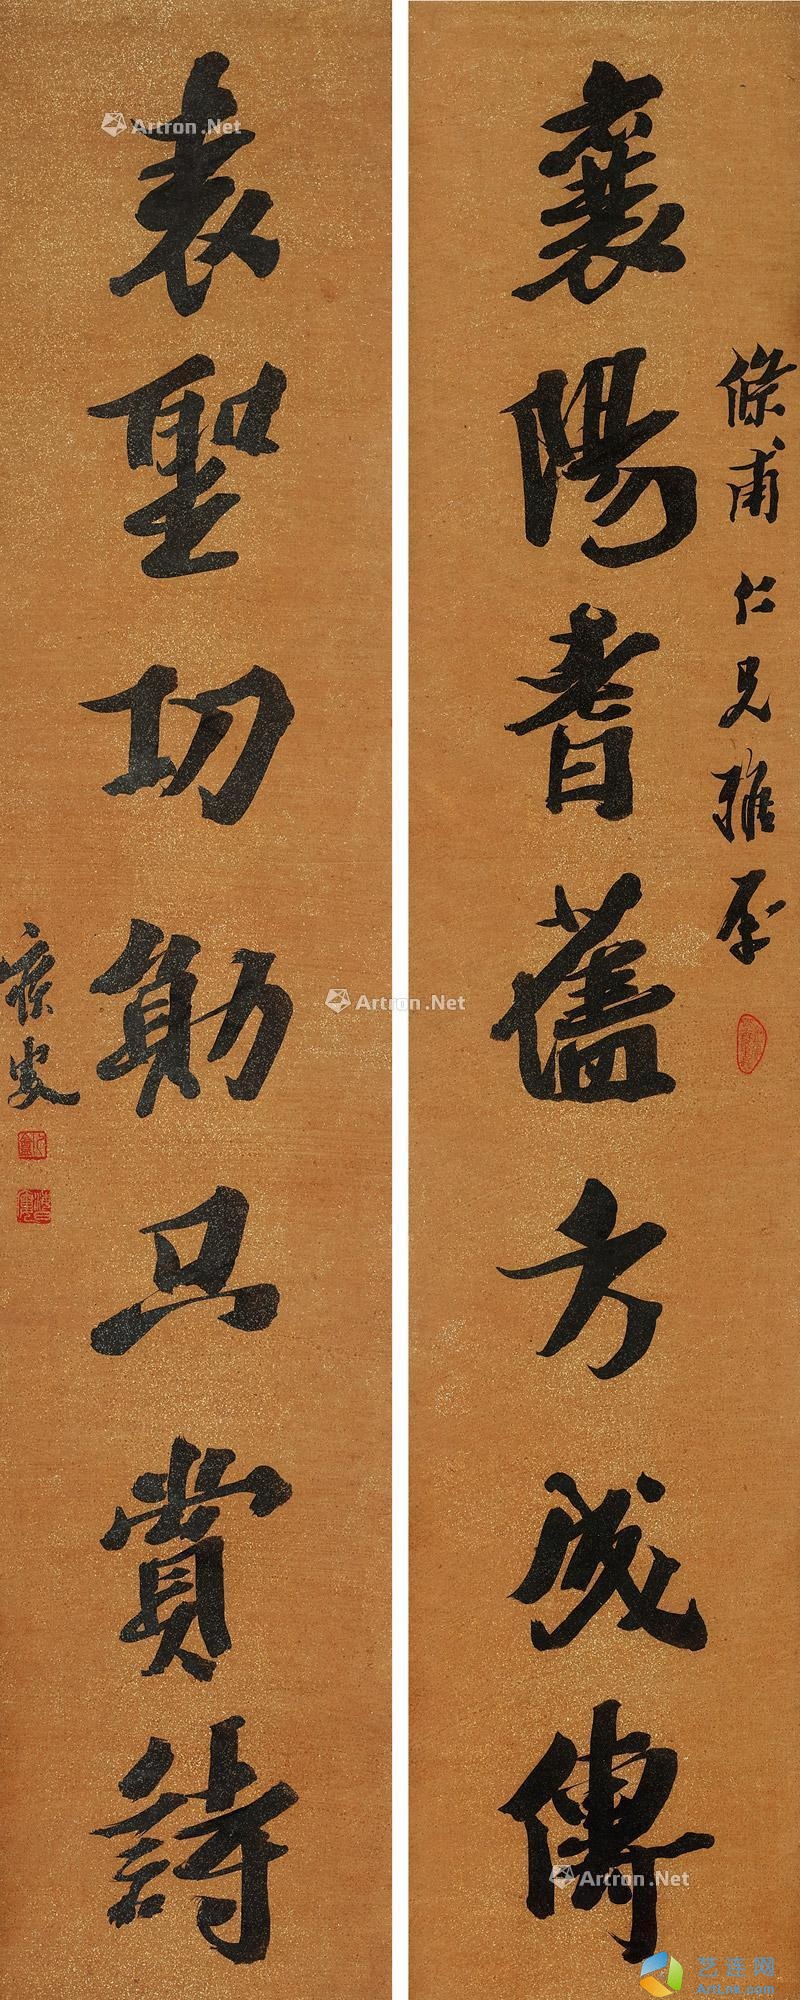 條甫仁兄雅屬
襄陽耆舊方成傳
表聖功勛只賞詩
Artron.Net
Artron.Net
Artron.Net
艺连网
ArtLnk.com